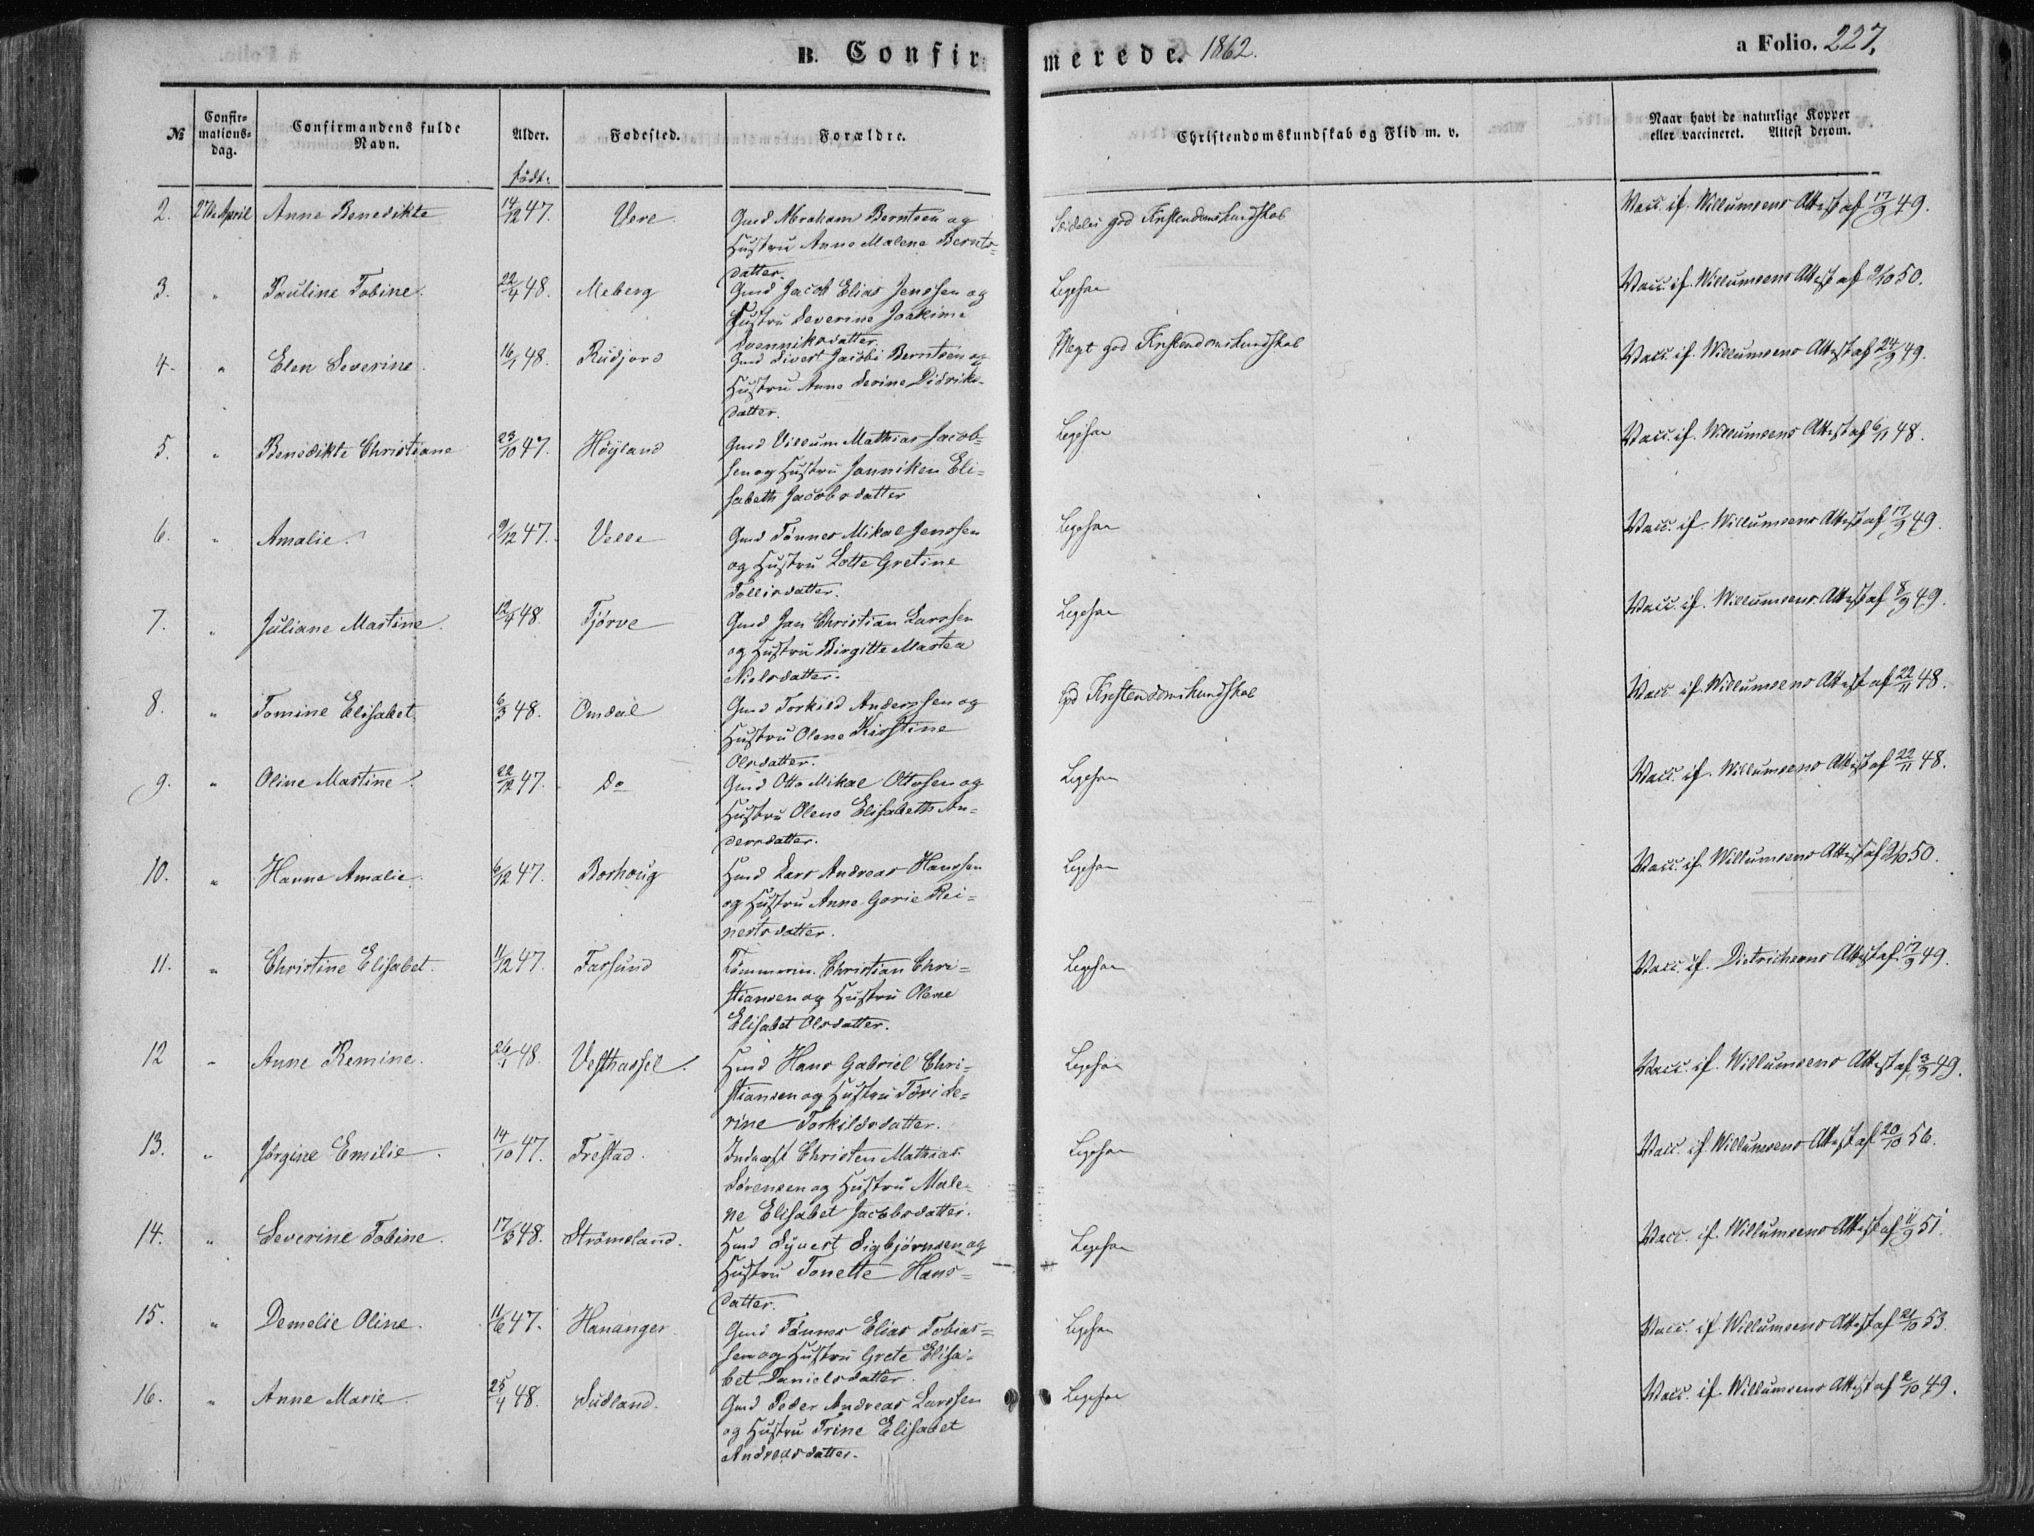 B. Confirmerede. 1862.
a Folio. 227.
№
Confirmations-dag.
Confirmandens fulde Navn.
Alder.
født.
Fødested.
Forældre.
Christendomskundskab og Flid m. v.
Naar havt de naturlige Kopper eller vaccineret. Attest derom.
2. 27de April Anne Benedikte 14/12 47. Vere. Gmd Abraham Berntsen og
Hustru Anne Malene Bernts-
datter.
god Kristendomskundskab
Vacc. if. Willumsens Attest af 17/9 49.
3. " Pauline Tobine. 22/4 48. Meberg Gmd Jacob Elias Jenssen og
Hustru Severine Joakime
datter.
Ligesaa
Vacc. if. Willumsens Attest af 2/10 50.
4. " Elen Severine. 16/1 48. Gmd Sivert Jacobi Berntsen og
Hustru Anne Serine Didriks-
datter.
Meget god Kristendomskundskab
Vacc. if. Willumsens Attest af 24/9 49.
5. " Benedikte Christiane 23/10 47. Höyland Gmd Villum Mathias Jacob-
sen og Hustru Janniken Eli-
sabeth Jacobsdatter
Ligesaa
Vacc. if. Willumsens Attest af 6/11 48.
6. " Amalie. 9/12 47. Velle Gmd Tönnes Mikal Jenssen
og Hustru Lotte Gretine
Tollisdatter.
Ligesaa
Vacc. if. Willumsens Attest af 17/9 49.
7. " Juliane Martine. 12/4 48. Tjørve Gmd Jan Christian Larssen
og Hustru Birgitte Martea
Nielsdatter.
Ligesaa
Vacc. if. Willumsens Attest af 8/9 49.
8. " Tomine Elisabet. 6/3 48. Omdal Gmd Torkild Anderssen og
Hustru Olene Kirstine
Olsdatter.
god Kristendomskundskab
Vacc. if. Willumsens Attest af 22/11 48.
9. " Oline Martine. 22/12 47. Do Gmd Otto Mikal Ottosen og
Hustru Olene Elisabeth An-
dersdatter.
Ligesaa
Vacc. if. Willumsens Attest af 22/11 48.
10. " Hanne Amalie. 6/12 47. Borhoug Hmd Lars Andreas Hanssen
og Hustru Anne Gorie Rei-
nertsdatter.
Ligesaa
Vacc. if. Willumsens Attest af 2/10 50.
11. " Christine Elisabet. 11/12 47. Farsund Tömmerm. Christian Chri-
stiansen og Hustru Olene
Elisabet Olsdatter.
Ligesaa
Vacc. if. Dietrichsens Attest af 17/9 49.
12 " Anne Remine. 26/1 48. Vesthassel. Hmd Hans Gabriel Chri-
stiansen og Hustru
Torkildsdatter.
Ligesaa
Vacc. if. Willumsens Attest af 3/9 49.
13. " Jörgine Emilie. 14/10 47. Frestad. Inderst Christen Mathias
Sörensen og Hustru Male-
ne Elisabet Jacobsdatter.
Ligesaa
Vacc. if. Willumsens Attest af 20/10 56.
14. " Severine Tobine. 17/3 48. Strömsland. Hmd Syvert Sigbjörnsen og
Hustru Tonette Hans-
datter.
Ligesaa
Vacc. if. Willumsens Attest af 11/9 51.
15. " Demelie Oline. 11/6 47. Hananger. Gmd Tönnes Elias Tobias-
sen og Hustru Grete Elisa-
bet Danielsdatter.
Ligesaa
Vacc. if. Willumsens Attest af 21/10 53.
16. " Anne Marie. 25/4 48. Sudland. Gmd Peder Andreas Larssen
og Hustru Trine Elisabet
Andreasdatter.
Ligesaa
Vacc. if. Willumsens Attest af 2/10 49.